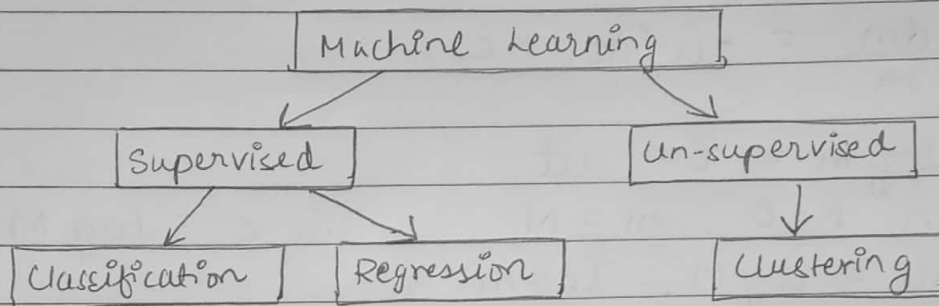 Machine Learning
Supervised
Un-supervised
Classification
Regression
Clustering